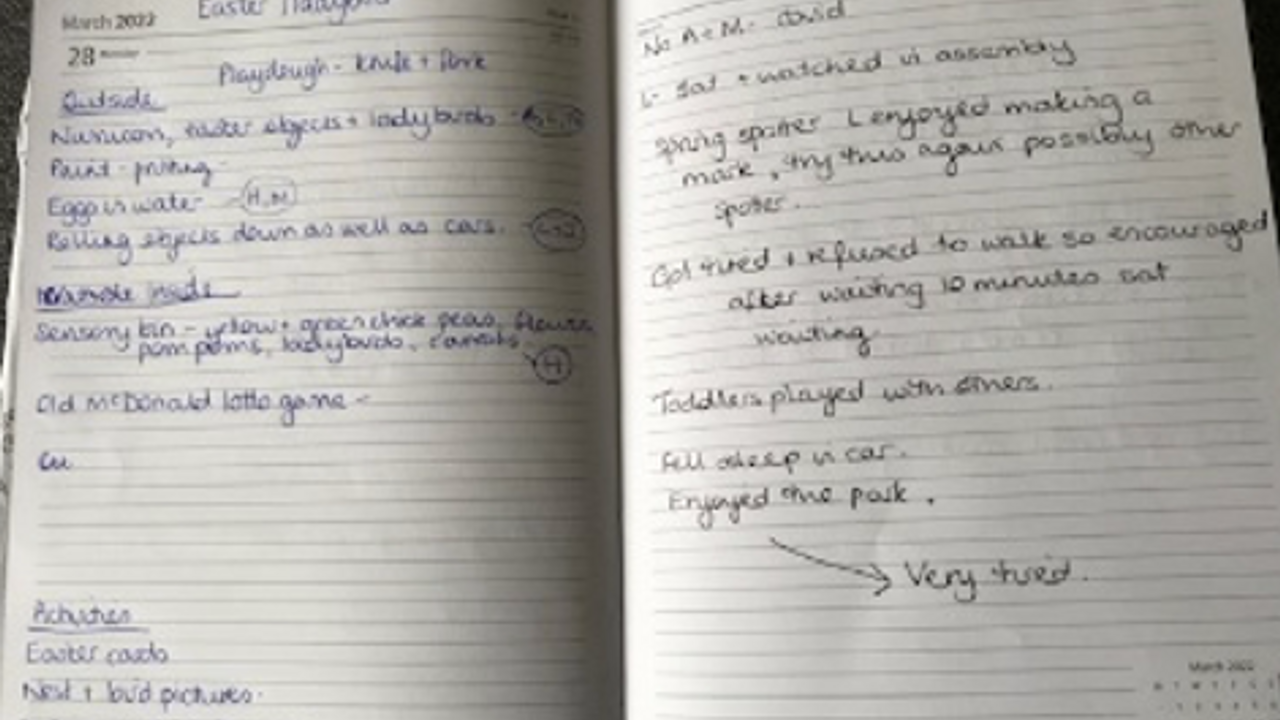 March 2022
Easter Ladybird
28 Monday
Playdough - knife + fork
Outside
Numicon, easter objects + ladybirds -
Paint - printing -
Eggs in water - H, M
Rolling objects down as well as cars. -
Inside
Sensory bin - yellow + green chick peas, flowers
pom poms, ladybirds, carrots
H
Old McDonald lotto game -
Cu
Activities
Easter cards
Nest + bird pictures.
No A + M - covid
L - sat + watched in assembly
Spring spotter L enjoyed making a
mark, try this again possibly other
spotter.
Got tired + refused to walk so encouraged
after waiting 10 minutes sat
waiting.
Toddlers played with others.
Fell asleep in car.
Enjoyed the park.
Very tired.
March 2022